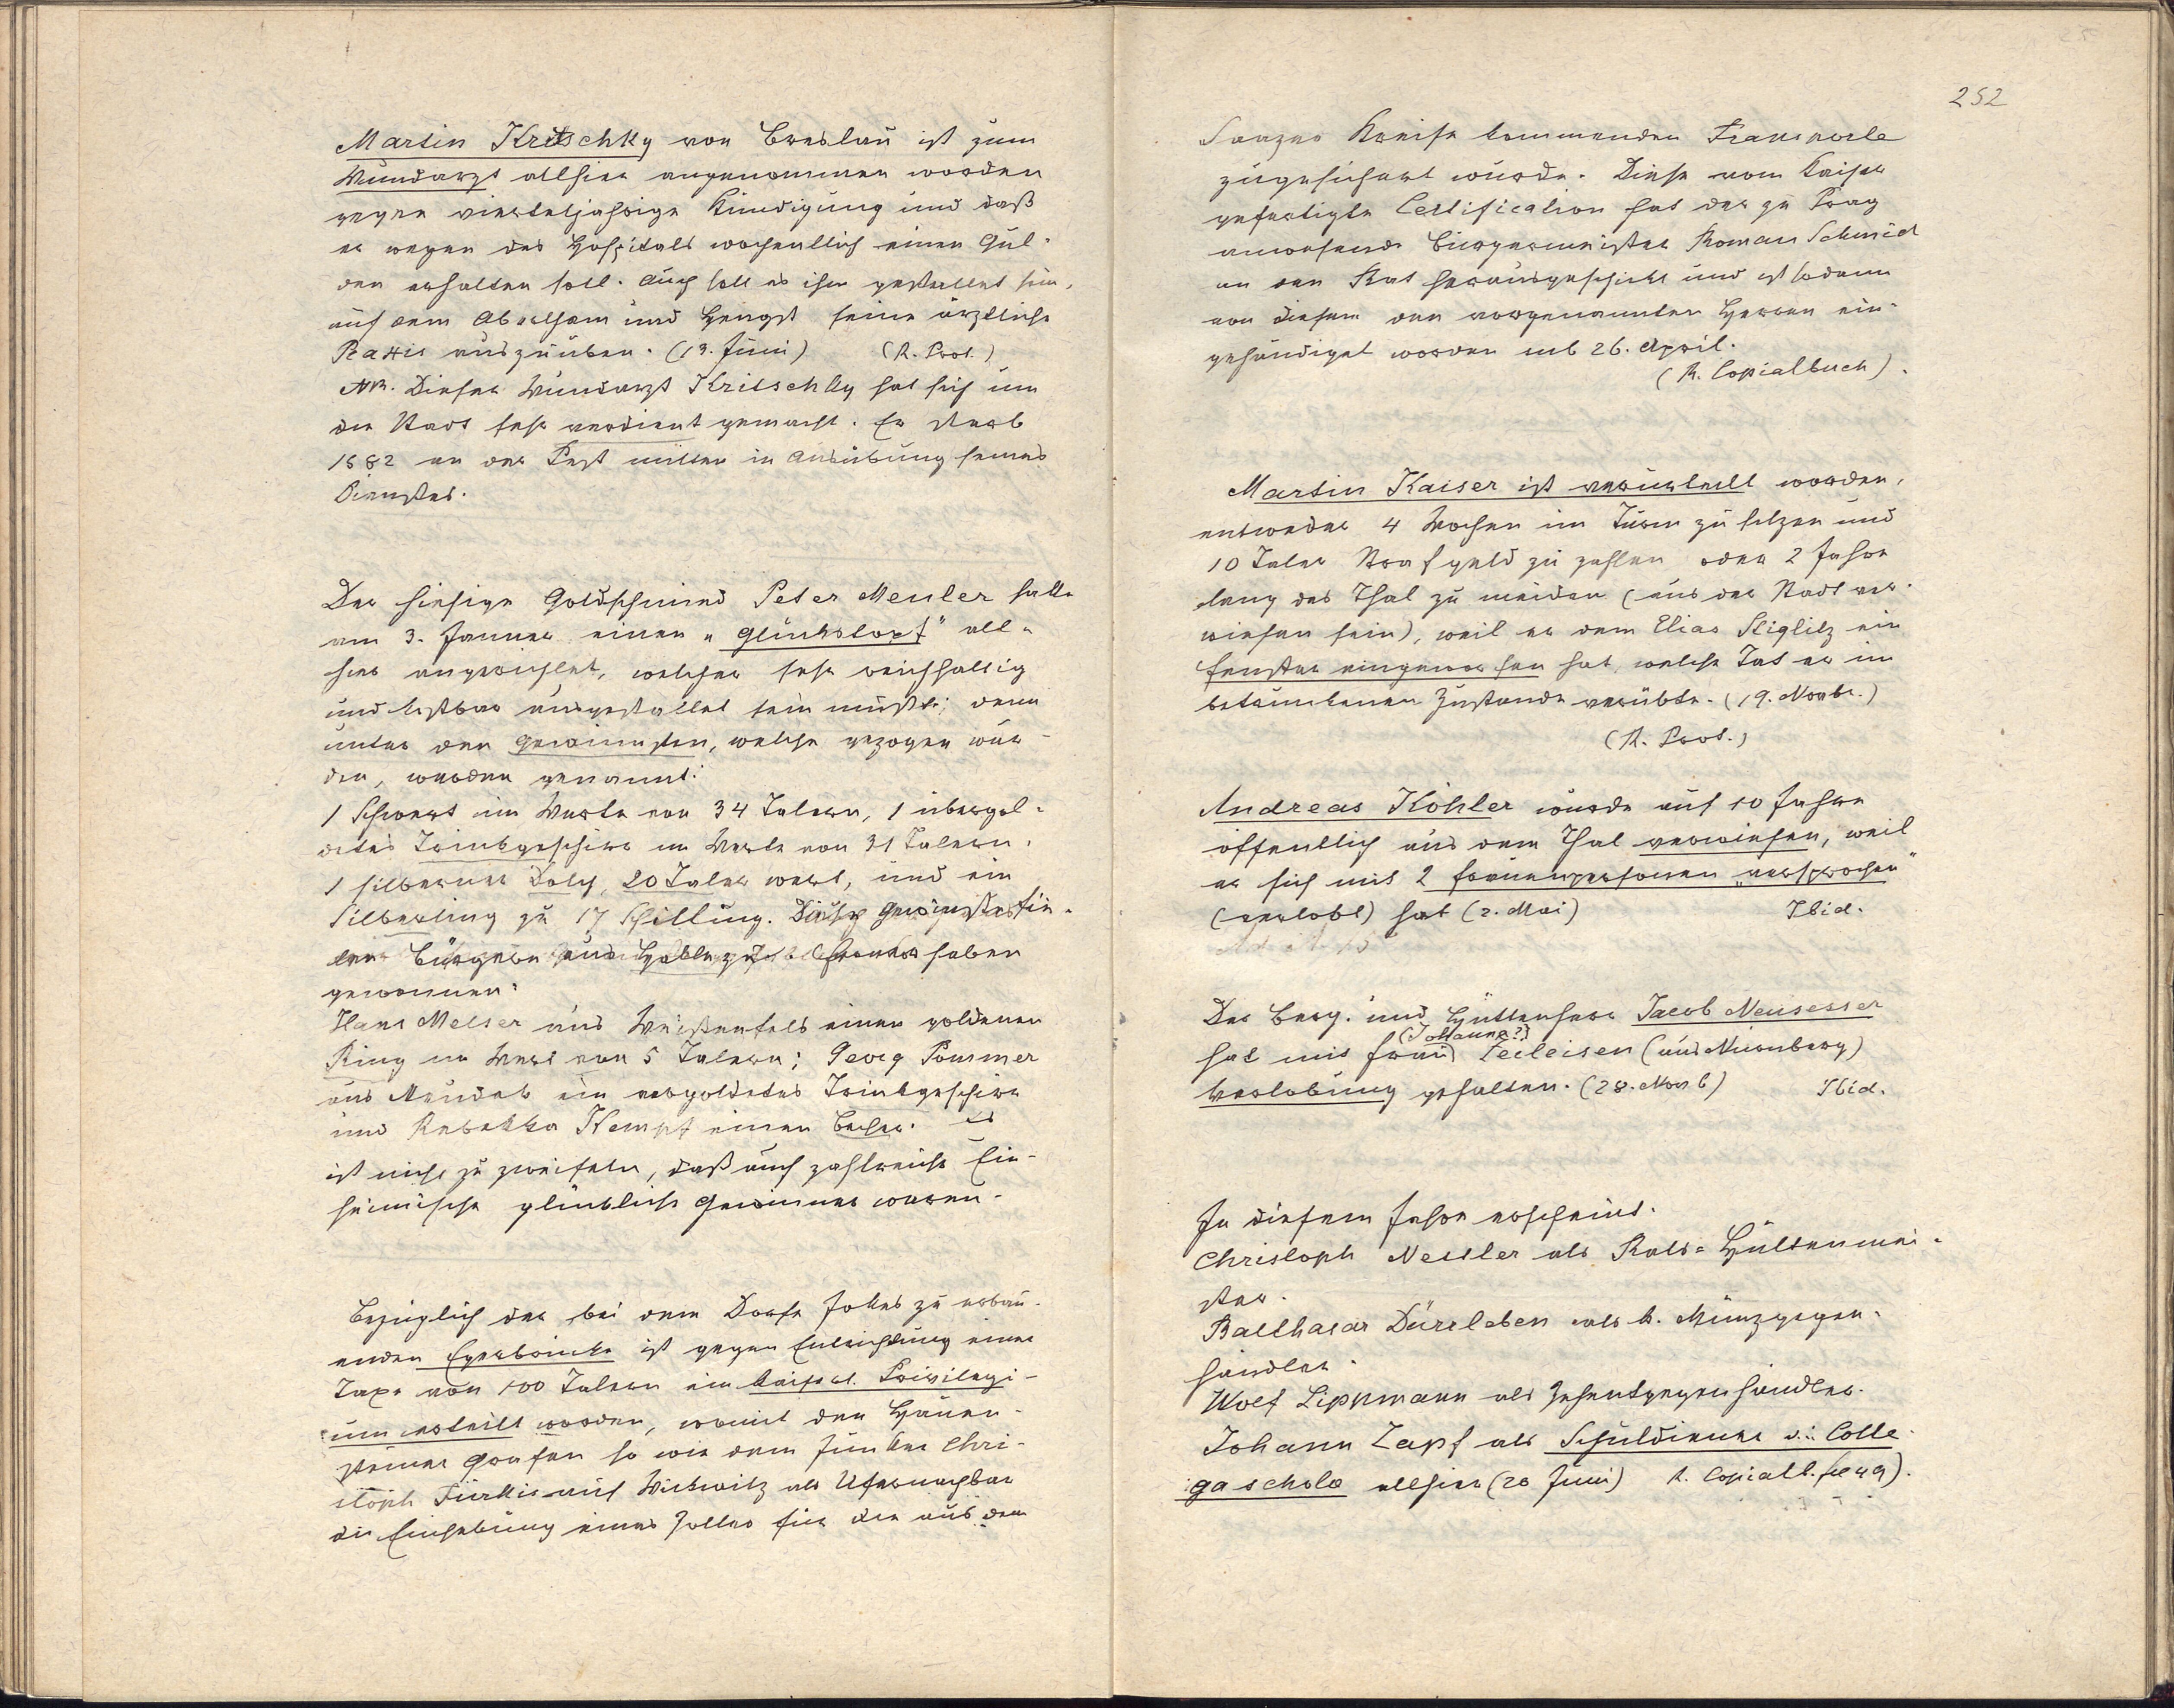 Martin Kritschky von Breslau ist zum
Wundarzt allhier angenommen worden
gegen vierteljahrige Kündigung und daß
er wegen des Hospitals wochentlich einen Gul-
den erhalten soll. Auch soll es ihm gestattet sein,
auf dem Abertham und Hengst seine ärztliche
Praxis auszuüben. (13. Juni) (R. Prot.)
NB. Dieser Wundarzt Kritschky hat sich um
die Stadt sehr verdient gemacht. Er starb
1582 an der Pest mitten in Ausübung seines
Dienstes.
Der hiesige Goldschmied Peter Meuler hatte
am 3. Janner einen "Glückstopf" all-
hier angerichtet, welcher sehr reichhaltig
und kostbar ausgestattet sein mußte; denn
unter den Gewinnsten, welche gezogen wur-
den, werden genannt:
1 Schwert im Werte von 34 Talern, 1 übergol-
detes Trinkgeschirr im Werte von 31 Talern,
1 silberner Dolch, 20 Taler wert, und ein
Silberling zu 17 Schilling.
Bürgern haben
gewonnen:
Hans Melser aus Weißenfels einen goldenen
Ring im Wert von 5 Talern; Georg Pommer
aus Neudek ein vergoldetes Trinkgeschirr
und Rebekka Kempf einen Becher. Es
ist nicht zu zweifeln, daß auch zahlreiche Ein-
heimische glückliche Gewinner waren.
Bezüglich der bei dem Dorfe Jokes zu erbau-
enden Egerbrücke ist gegen Entrichtung einer
Taxe von 100 Talern ein kaiserl. Privilegi-
um erteilt worden, womit den Hauen-
steiner Grafen so wie dem Junker Chri-
stoph Türkis auf Wickwitz als Ufernachbar
die Einhebung eines Zolles für die aus dem
252
Saazer Kreise kommenden Transporte
zugesichert wurde. Diese vom Kaiser
gefertigte Certification hat der zu Prag
anwesende Bürgermeister Roman Schmid
an den Rat herausgeschickt und ist sodann
von diesem den vorgenannten Herren ein-
gehändiget worden sub 26. April.
(R. Copialbuch).
Martin Kaiser ist verurteilt worden,
entweder 4 Wochen im Turm zu sitzen und
10 Taler Strafgeld zu zahlen oder 2 Jahre
lang das Thal zu meiden (aus der Stadt ver-
wiesen sein), weil er dem Elias Stiglitz ein
Fenster eingeworfen hat, welche Tat er im
betrunkenen Zustande verübte. (19. Novbr.)
(R. Prot.)
Andreas Köhler wurde auf 10 Jahre
öffentlich aus dem Thal verwiesen, weil
er sich mit 2 Frauenpersonen "versprochen"
(verlobt) hat (2. Mai) Ibid.
Der Berg- und Hüttenherr Jacob Neusesser
(Johanna?)
hat mit Frau Zeileisen (aus Nürnberg)
Verlobung gehalten. (28. Novb) Ibid.
In diesem Jahre erscheint:
Christoph Nestler als Rats-Hüttenmei-
ster.
Balthasar Dürrleben als k. Münzgegen-
händler.
Wolf Lippmann als Zehentgegenhändler.
Johann Zapf als Schuldiener v. Colle-
ga schola allhier (20 Juni) R. Copialb.